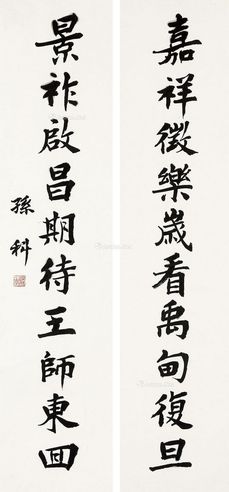 嘉祥徵樂歲看禹甸復旦
景祚啟昌期待王師東回
孫科